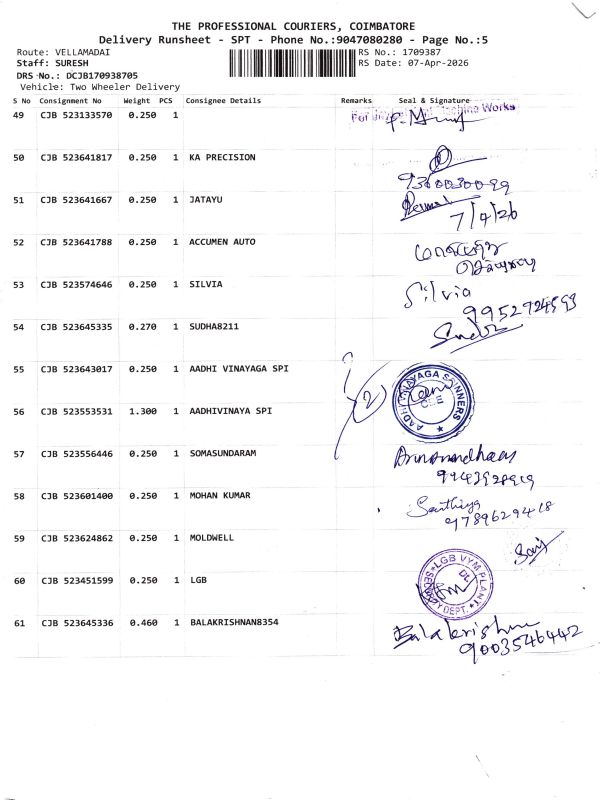 THE PROFESSIONAL COURIERS, COIMBATORE
Delivery Runsheet - SPT - Phone No.:9047080280 - Page No.:5
Route: VELLAMADAI
RS No.: 1709387
Staff: SURESH
RS Date: 07-Apr-2026
DRS No.: DCJB170938705
Vehicle: Two Wheeler Delivery
S No Consignment No Weight PCS Consignee Details Remarks Seal & Signature
49 CJB 523133570 0.250 1
For Machine Works
50 CJB 523641817 0.250 1 KA PRECISION
51 CJB 523641667 0.250 1 JATAYU
7/4/26
52 CJB 523641788 0.250 1 ACCUMEN AUTO
53 CJB 523574646 0.250 1 SILVIA
Silvia
9952724593
54 CJB 523645335 0.270 1 SUDHA8211
55 CJB 523643017 0.250 1 AADHI VINAYAGA SPI
2
AADHI VINAYAGA SPINNERS
CBE
56 CJB 523553531 1.300 1 AADHIVINAYA SPI
57 CJB 523556446 0.250 1 SOMASUNDARAM
58 CJB 523601400 0.250 1 MOHAN KUMAR
Santhiya
9789629418
59 CJB 523624862 0.250 1 MOLDWELL
60 CJB 523451599 0.250 1 LGB
LGB VYM PLANT
SECURITY DEPT.
61 CJB 523645336 0.460 1 BALAKRISHNAN8354
Balakrishnan
9003546442